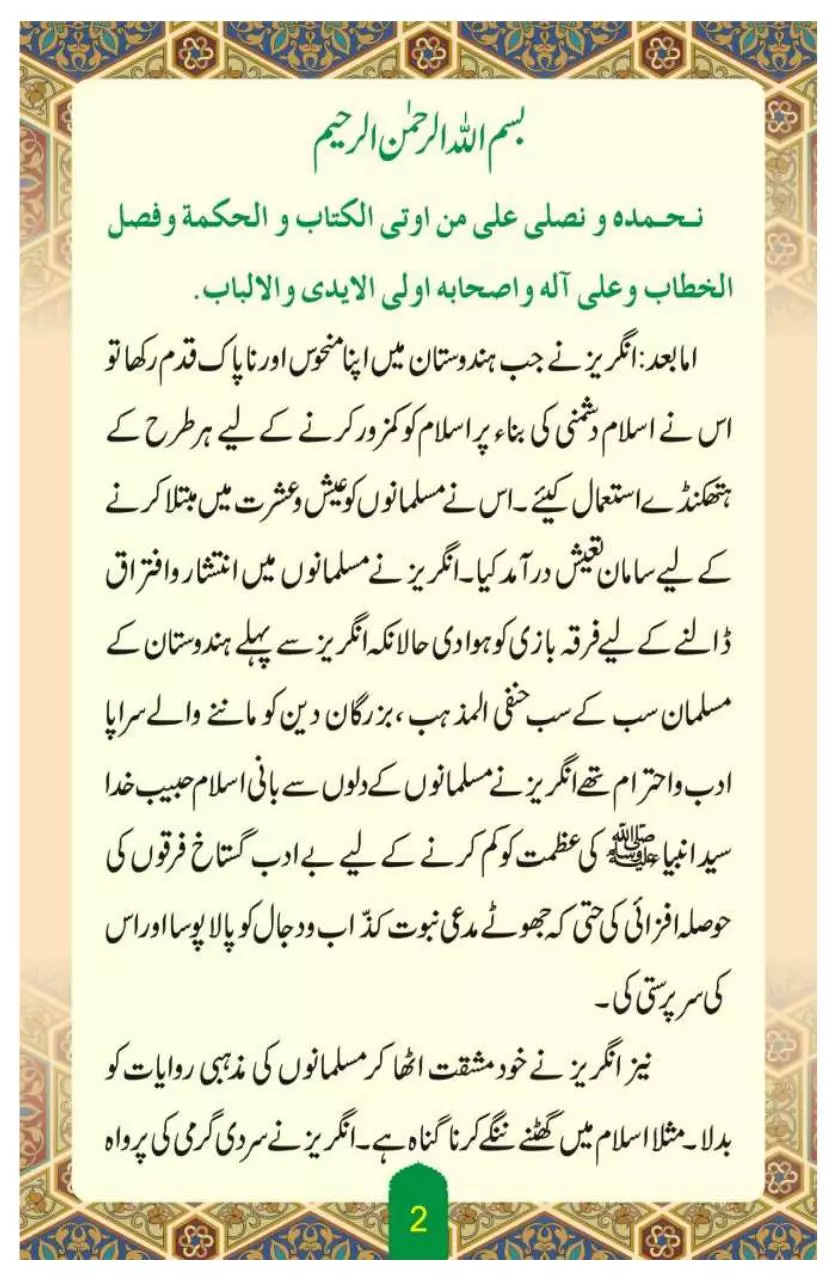 بسم اللہ الرحمٰن الرحیم
نحمده و نصلى على من اوتى الكتاب و الحكمة وفصل
الخطاب وعلى آله واصحابه اولى الايدى والالباب.
امابعد: انگریز نے جب ہندوستان میں اپنا منحوس اور ناپاک قدم رکھا تو
اس نے اسلام دشمنی کی بناء پر اسلام کو کمزور کرنے کے لیے ہر طرح کے
ہتھکنڈے استعمال کیئے۔اس نے مسلمانوں کو عیش وعشرت میں مبتلا کرنے
کے لیے سامان تعیش درآمد کیا۔انگریز نے مسلمانوں میں انتشار وافتراق
ڈالنے کے لیے فرقہ بازی کو ہوا دی حالانکہ انگریز سے پہلے ہندوستان کے
مسلمان سب کے سب حنفی المذہب ،بزرگان دین کو ماننے والے سراپا
ادب واحترام تھے انگریز نے مسلمانوں کے دلوں سے بانی اسلام حبیب خدا
سید انبیاء ﷺ کی عظمت کو کم کرنے کے لیے بے ادب گستاخ فرقوں کی
حوصلہ افزائی کی حتی کہ جھوٹے مدعی نبوت کذّاب ودجال کو پالا پوسا اور اس
کی سرپرستی کی۔
نیز انگریز نے خود مشقت اٹھا کر مسلمانوں کی مذہبی روایات کو
بدلا۔مثلا اسلام میں گھٹنے ننگے کرنا گناہ ہے۔انگریز نے سردی گرمی کی پرواہ
2